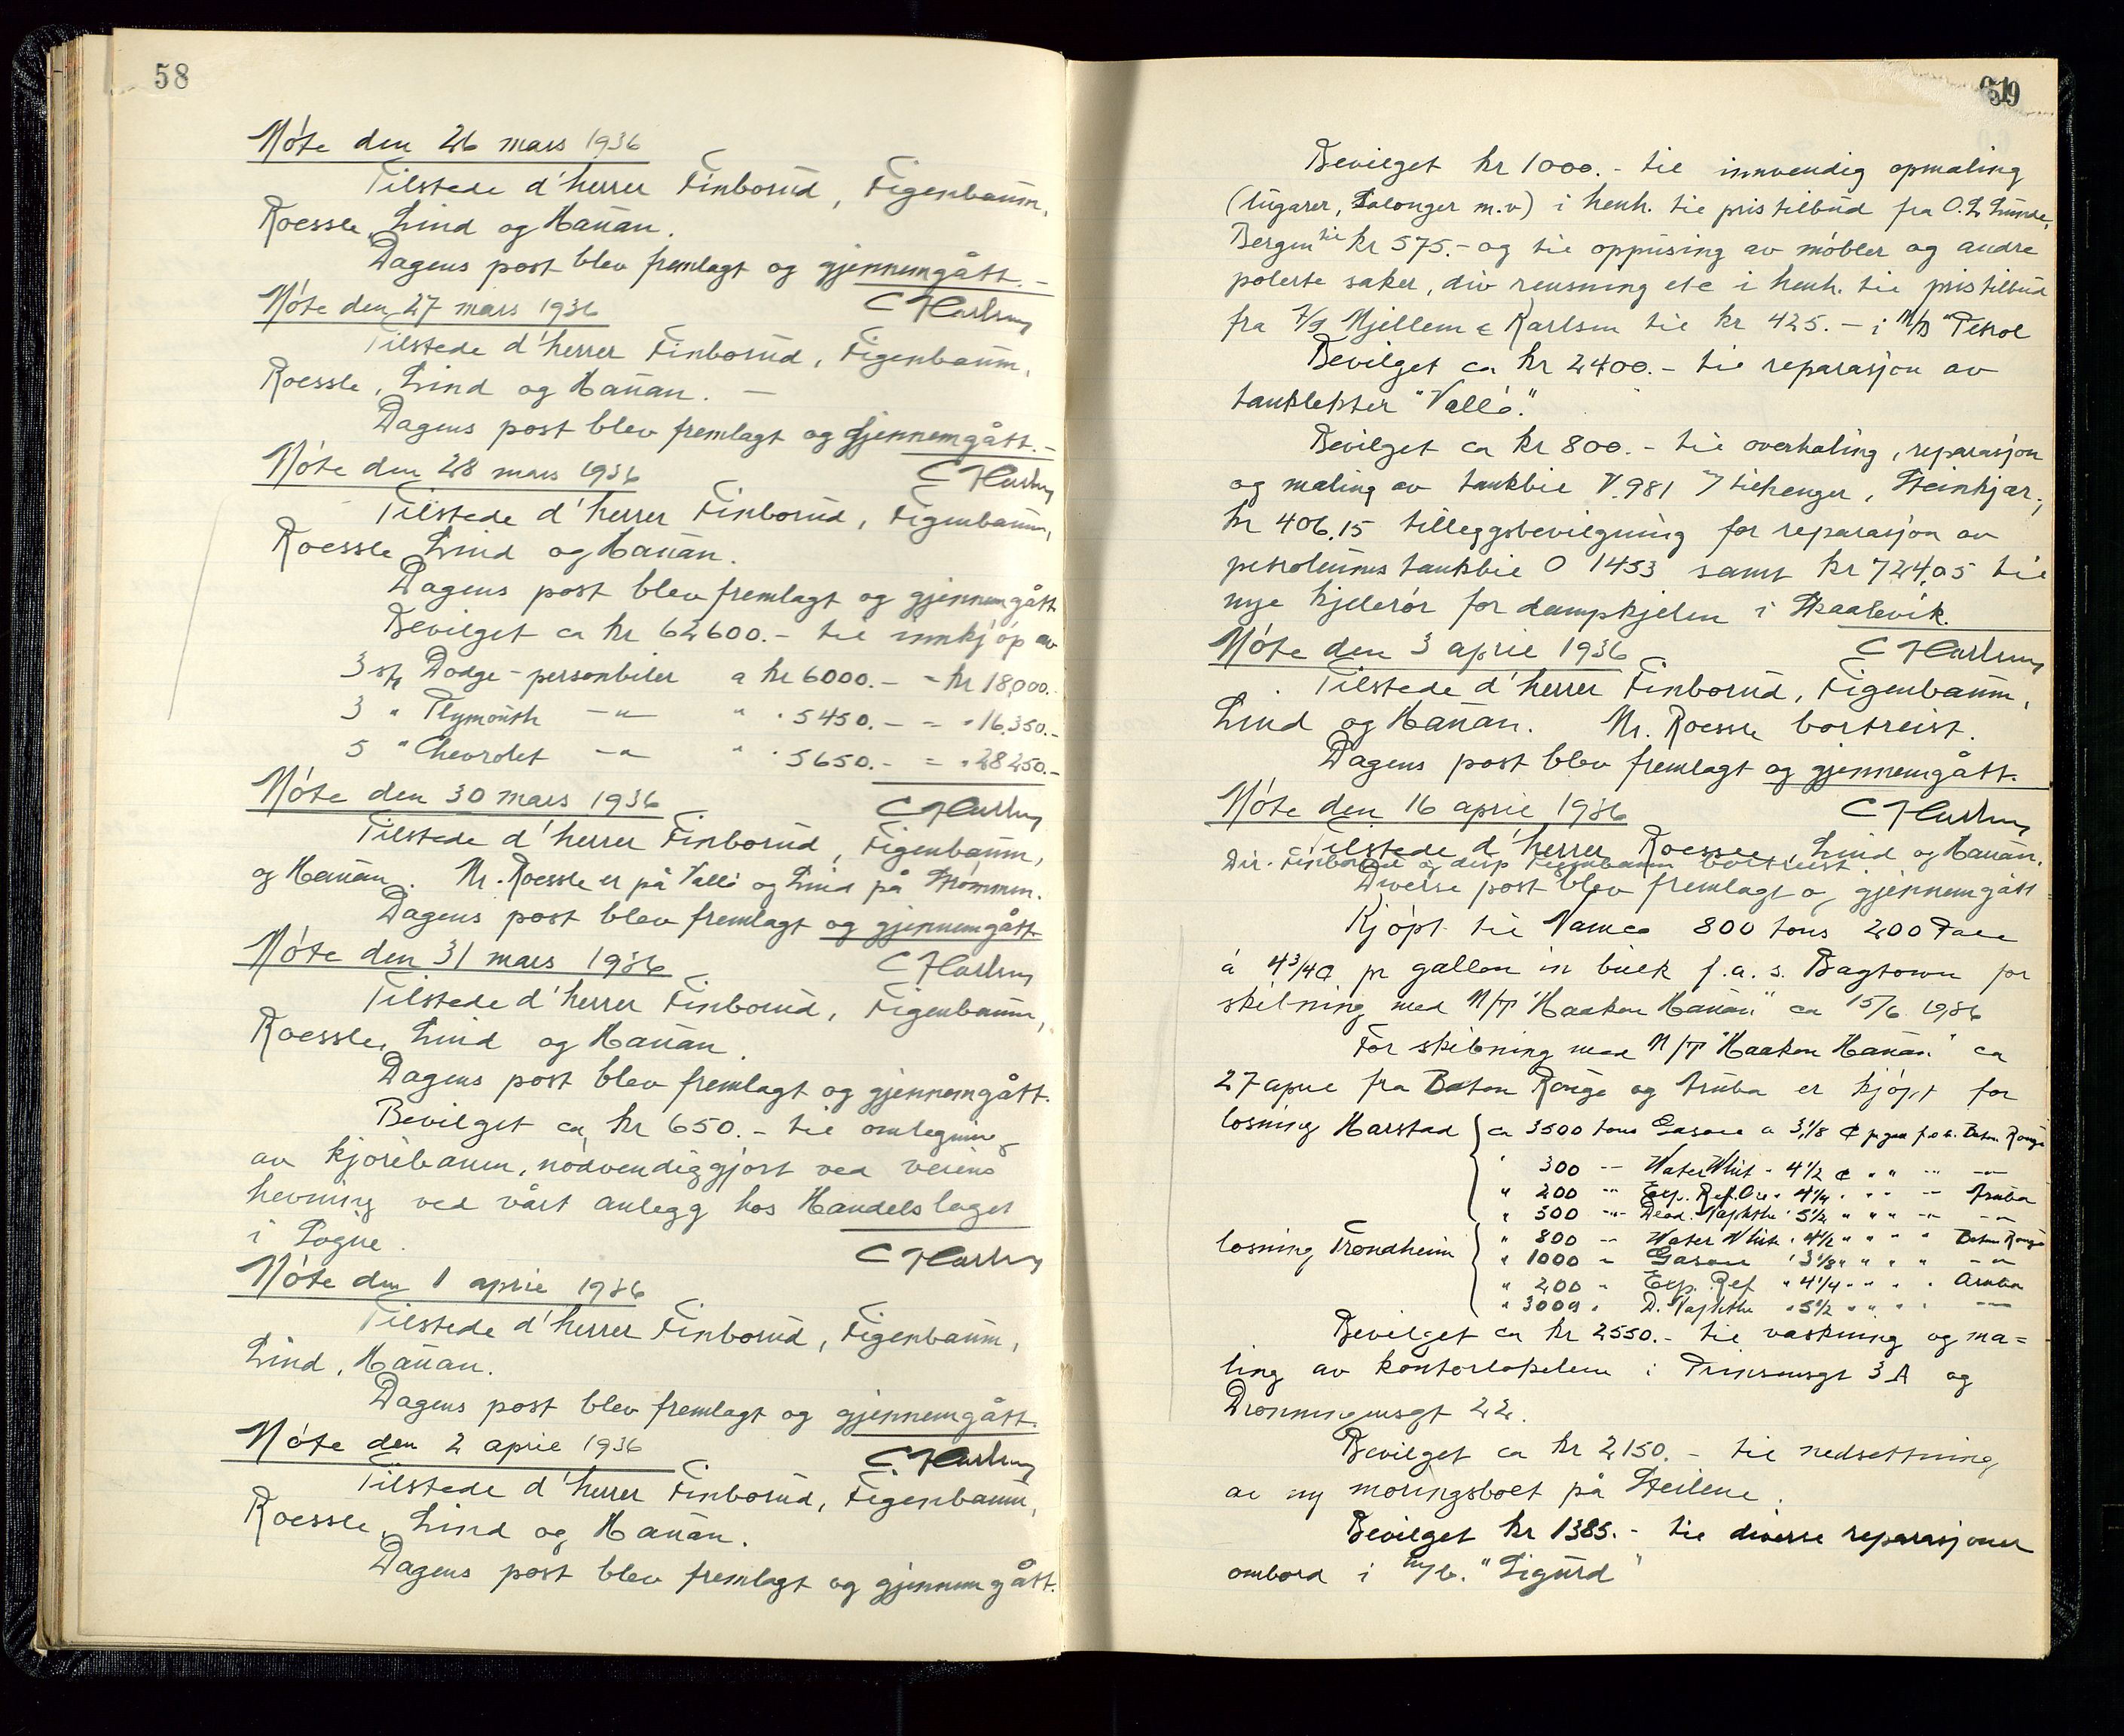 58
Møte den 26 mars 1936
Tilstede d'herrer Finborud, Figenbaum,
Roessle, Lind og Hauan.
Dagens post blev fremlagt og gjennemgått. -
Møte den 27 mars 1936
Tilstede d'herrer Finborud, Figenbaum,
Roessle, Lind og Hauan. —
Dagens post blev fremlagt og gjennemgått. -
Møte den 28 mars 1936
Tilstede d'herrer Finborud, Figenbaum,
Roessle Lind og Hauan.
Dagens post blev fremlagt og gjennemgått
Bevilget ca kr 62600.- til innkjøp av
3 stk Dodge-personbiler a kr 6000.- = kr 18,000.-
3 " Plymouth —"— " " 5450.- = " 16.350.-
5 " Chevrolet —"— " " 5650.- = " 28250.-
Møte den 30 mars 1936
Tilstede d'herrer Finborud, Figenbaum,
og Hauan. Mr. Roessle er på Vallø og Lind på Strømmen.
Dagens post blev fremlagt og gjennemgått
Møte den 31 mars 1936
Tilstede d'herrer Finborud, Figenbaum,
Roessle, Lind og Hauan.
Dagens post blev fremlagt og gjennemgått.
Bevilget ca kr 650.- til omlegning
av kjørebanen, nødvendiggjort ved veiens
hevning ved vårt anlegg hos Handelslaget
i Sogne.
Møte den 1 april 1936
Tilstede d'herrer Finborud, Figenbaum,
Lind, Hauan.
Dagens post blev fremlagt og gjennemgått.
Møte den 2 april 1936
Tilstede d'herrer Finborud, Figenbaum,
Roessle, Lind og Hauan.
Dagens post blev fremlagt og gjennemgått.
59
Bevilget kr 1000.- til innvendig opmaling
(lugarer, Salonger m.v) i henh. til pristilbud fra O. L. Lunde,
Bergen til kr 575.- og til oppussing av møbler og andre
polerte saker, div rensning etc i henh. til pristilbud
fra Mjellem & Karlsen til kr 425.- i M/S "Petrol
Bevilget ca kr 2400.- til reparasjon av
tanklekter "Vallø."
Bevilget ca kr 800.- til overhaling, reparasjon
og maling av tankbil V.981 tilhenger, Steinkjer,
kr 406.15 tilleggsbevilgning for reparasjon av
petroleumstankbil O 1453 samt kr 724.05 til
nye kjelerør for dampkjelen i Skaalevik.
Møte den 3 april 1936
Tilstede d'herrer Finborud, Figenbaum,
Lind og Hauan. Mr. Roessle bortreist.
Dagens post blev fremlagt og gjennemgått.
Møte den 16 april 1936
Tilstede d'herrer Roessle, Lind og Hauan.
Dir. Finborud og disp Figenbaum bortreist.
Diverse post blev fremlagt og gjennemgått
Kjøpt til Vamco 800 tons 200 Pale
á 4 3/4 ¢ pr gallon in bulk f.a.s. Bagtown for
skibning med M/T "Haakon Hauan" ca 15/6 1936
For skibning med M/T "Haakon Hauan" ca
27 april fra Baton Rouge og Aruba er kjøpt for
losning Harstad ca 3500 tons Gasoil a 3 1/8 ¢ pr gall f.o.b. Baton Rouge
" 300 — Water Whit " 4 1/2 ¢ " " — —"—
" 200 — Exp. Ref. Oil " 4 1/4 " " " — Aruba
" 300 — Dead. Naphtha " 5 1/2 " " " — —"—
losning Trondheim " 800 — Water White " 4 1/2 " " " " Baton Rouge
" 1000 " Gasoil " 3 1/8 " " " " —"—
" 200 " Exp. Ref " 4 1/4 " " " " Aruba
" 300 " D. Naphtha " 5 1/2 " " " " —"—
Bevilget ca kr 2550.- til vaskning og ma=
ling av kontorlokalene i Prinsensgt 3A og
Dronningensgt 22.
Bevilget ca kr 2150.- til nedsettning
av ny moringsbolt på Steilene.
Bevilget kr 1385.- til diverse reparasjoner
ombord i M/b. "Sigurd"